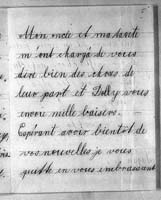 Mon oncle et ma tante
m'ont chargé de vous
dire bien des choses de
leur part et Dolly vous
envoi mille baisers.
Espérant avoir bientôt de
vos nouvelles je vous
quitte en vous embrassant